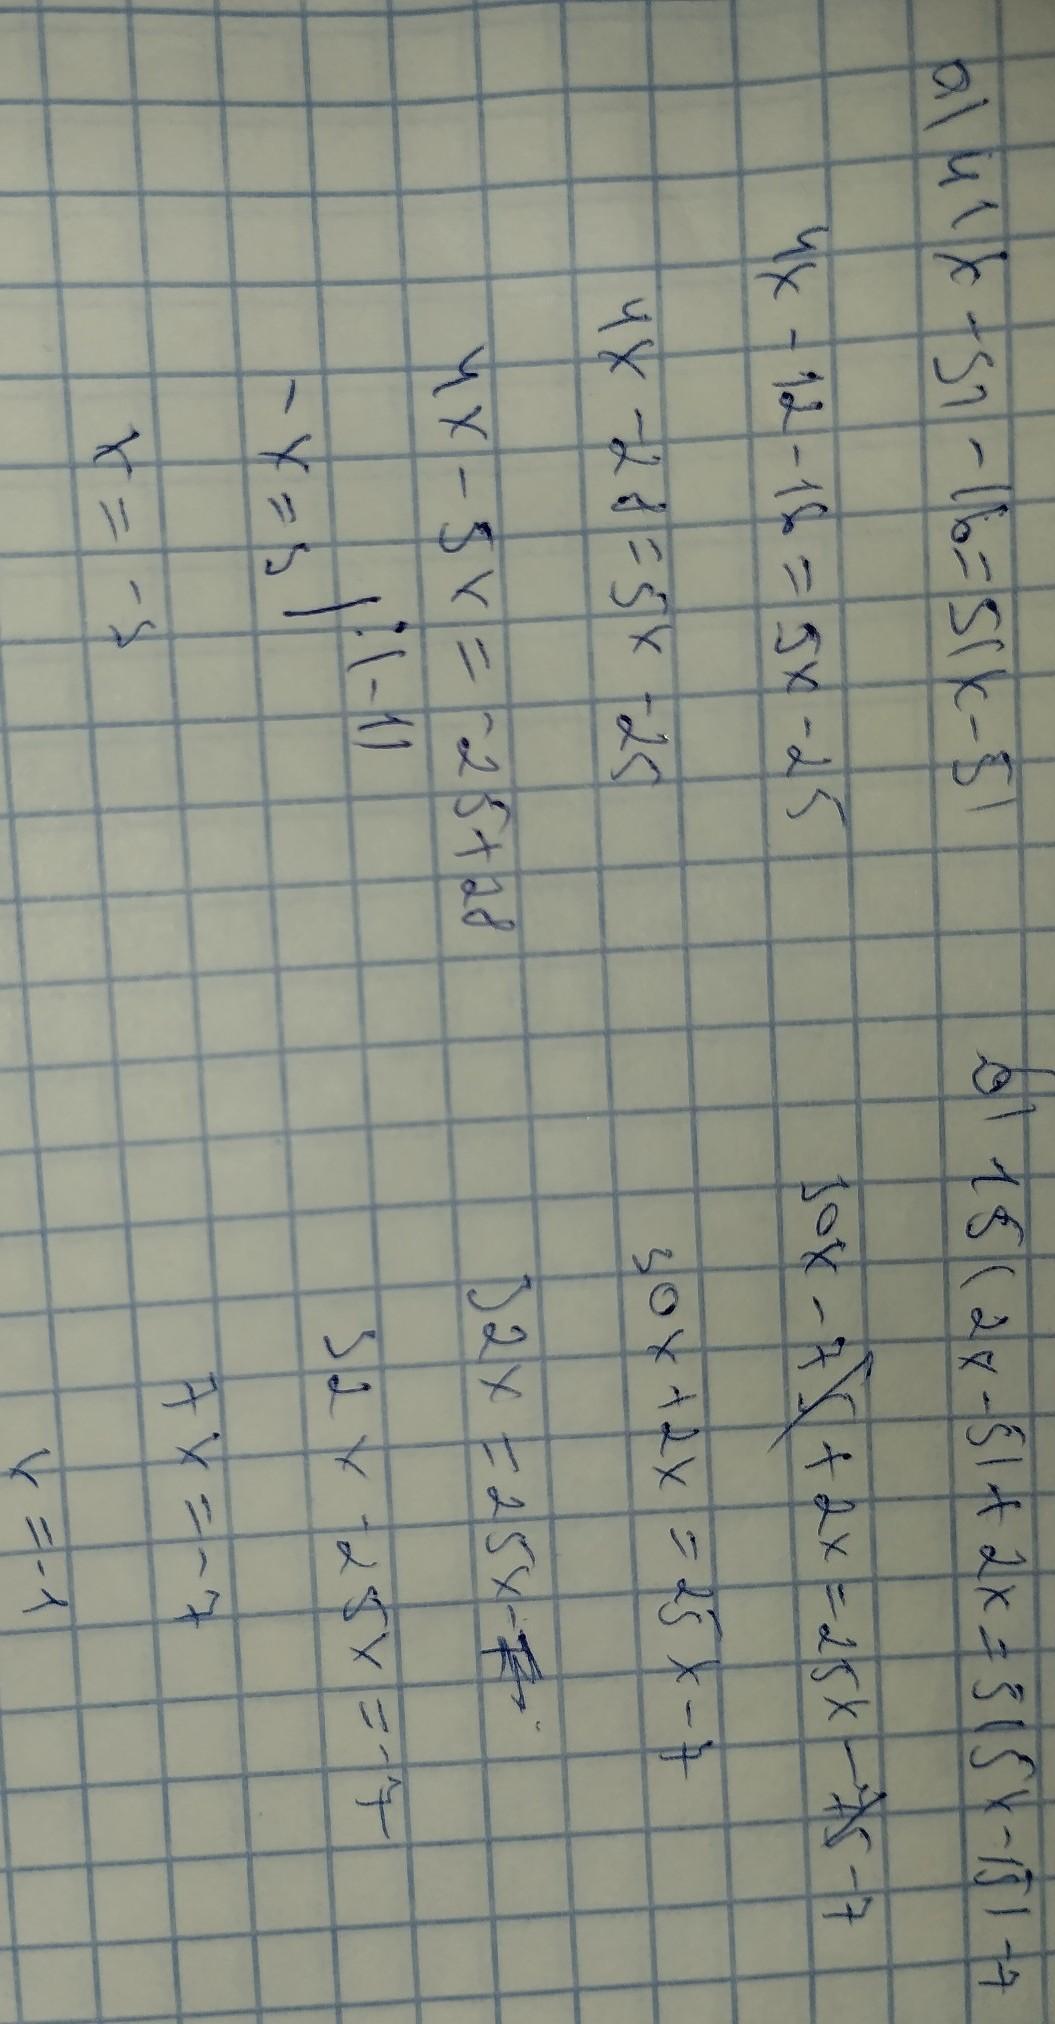 a) 4(x-3)-16=5(x-5)
4x-12-16=5x-25
4x-28=5x-25
4x-5x=-25+28
-x=3 |:(-1)
x=-3
b) 15(2x-5)+2x=5(5x-15)-7
30x-75+2x=25x-75-7
30x+2x=25x-7
32x=25x-7
32x-25x=-7
7x=-7
x=-1